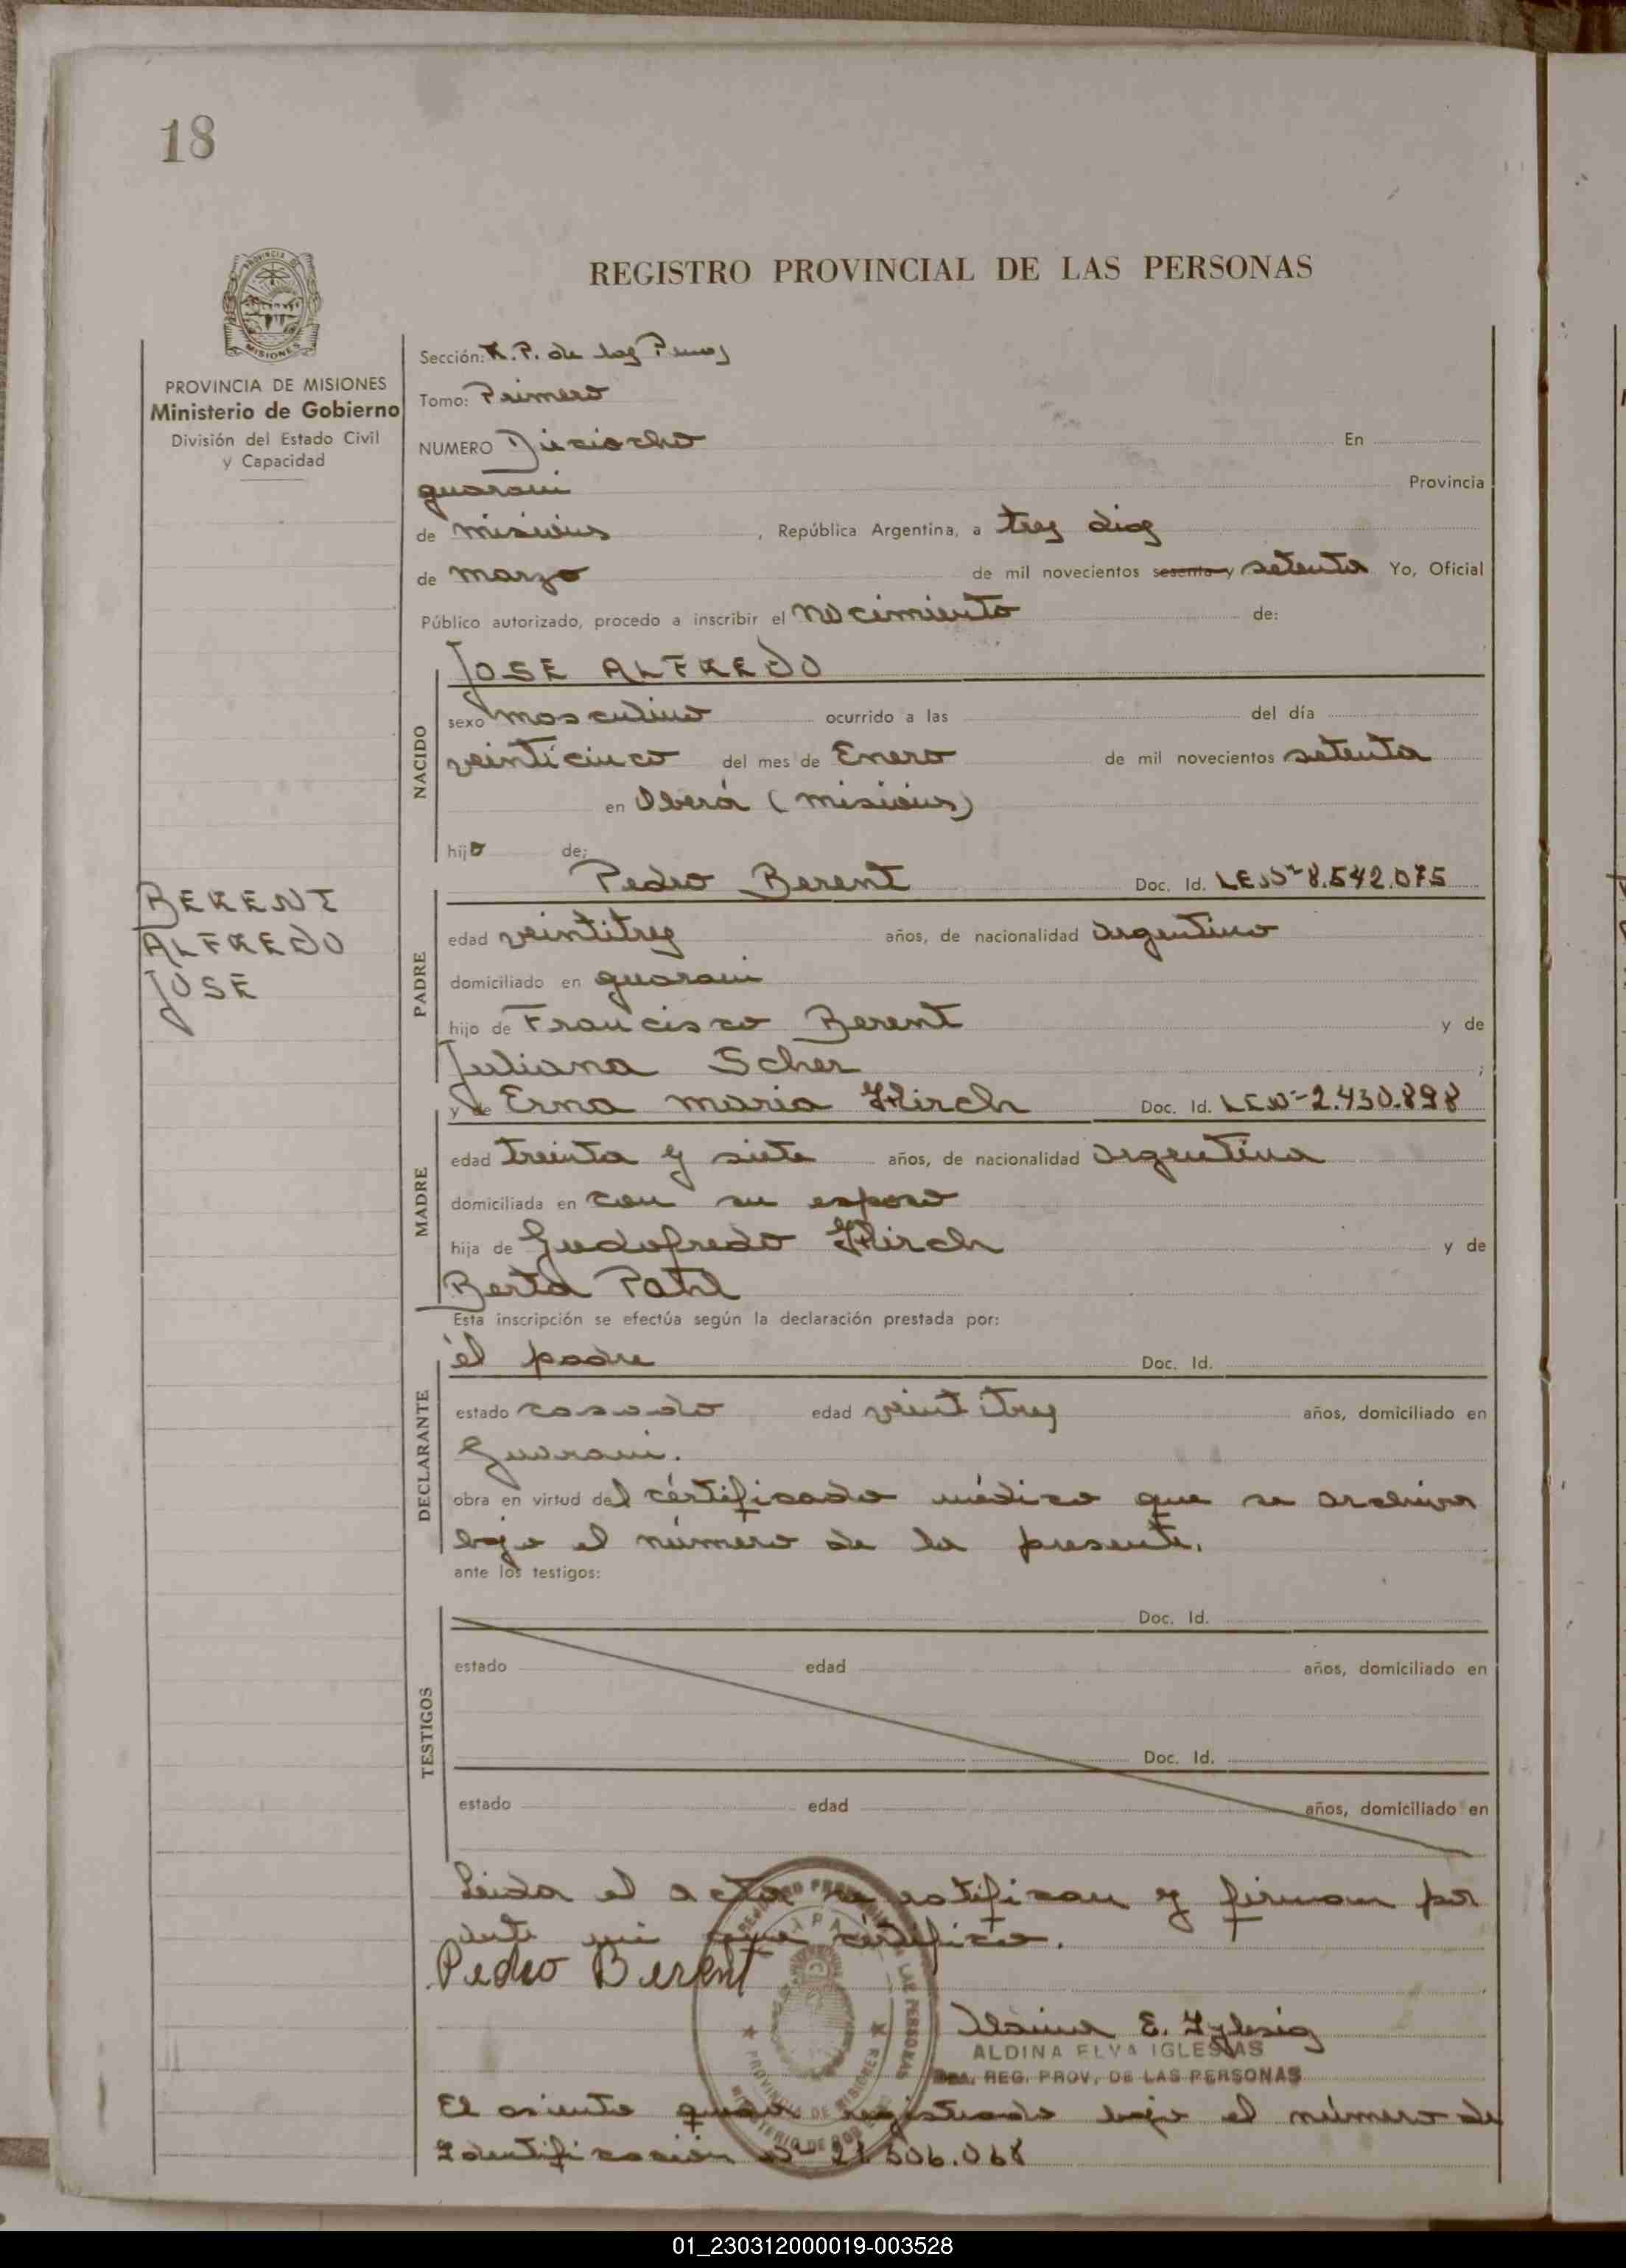 18
REGISTRO PROVINCIAL DE LAS PERSONAS
MISIONES
PROVINCIA DE MISIONES
Ministerio de Gobierno
División del Estado Civil
y Capacidad
Sección: R. P. de las
Tomo: Primero
NUMERO Dieciocho En
guarani Provincia
de misiones , República Argentina, a tres dias
de marzo de mil novecientos sesenta y setenta Yo, Oficial
Público autorizado, procedo a inscribir el nacimiento de:
JOSE ALFREDO
NACIDO
sexo masculino ocurrido a las del día
veinticinco del mes de Enero de mil novecientos setenta
en Oberá (misiones)
hijo de;
Pedro Berent Doc. Id. LE Nº 8.542.075
BERENT
ALFREDO
JOSE
PADRE
edad veintitres años, de nacionalidad argentino
domiciliado en guarani
hijo de Francisco Berent y de
Juliana Scher ;
y de Erna maria Hirch Doc. Id. LE Nº 2.430.898
MADRE
edad treinta y siete años, de nacionalidad argentina
domiciliada en con su esposo
hija de Gudofredo Hirch y de
Berta Pahl
Esta inscripción se efectúa según la declaración prestada por:
él padre Doc. Id.
DECLARANTE
estado casado edad veintitres años, domiciliado en
Guarani.
obra en virtud del cértificado médico que se archiva
bajo el número de la presente.
ante los testigos:
TESTIGOS
Doc. Id.
estado edad años, domiciliado en
Doc. Id.
estado edad años, domiciliado en
Leida el acta se ratifican y firman por
ante mi que certifico.
Pedro Berent
Aldina E. Iglesias
ALDINA ELVA IGLESIAS
REG. PROV. DE LAS PERSONAS
El asiento queda registrado bajo el número de
Identificación Nº 21.506.068
01_230312000019-003528